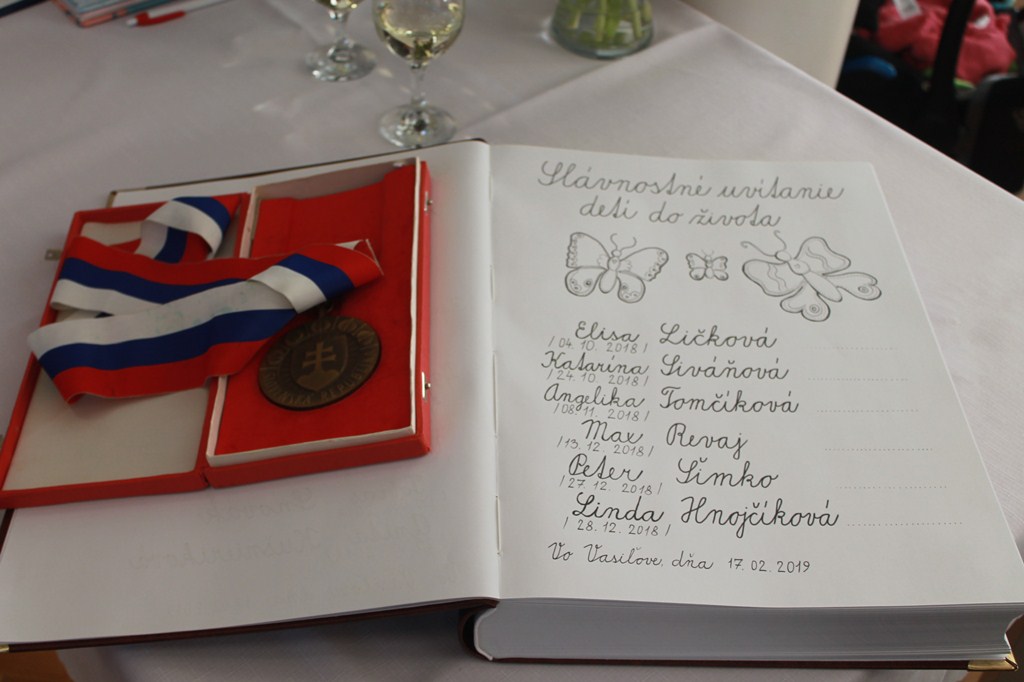 Slávnostné uvítanie
deti do života
Elisa Ličková
/04. 10. 2018/
Katarína Siváňová
/24. 10. 2018/
Angelika Tomčíková
/08. 11. 2018/
Max Revaj
/13. 12. 2018/
Peter Šimko
/27. 12. 2018/
Linda Hnojčíková
/28. 12. 2018/
Vo Vasiľove, dňa 17. 02. 2019